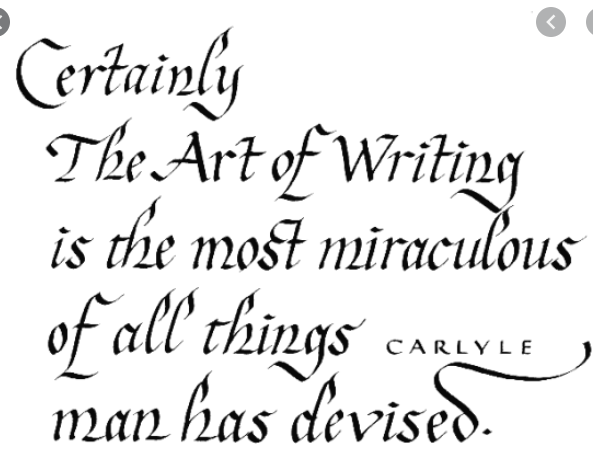 Certainly
The Art of Writing
is the most miraculous
of all things CARLYLE
man has devised.